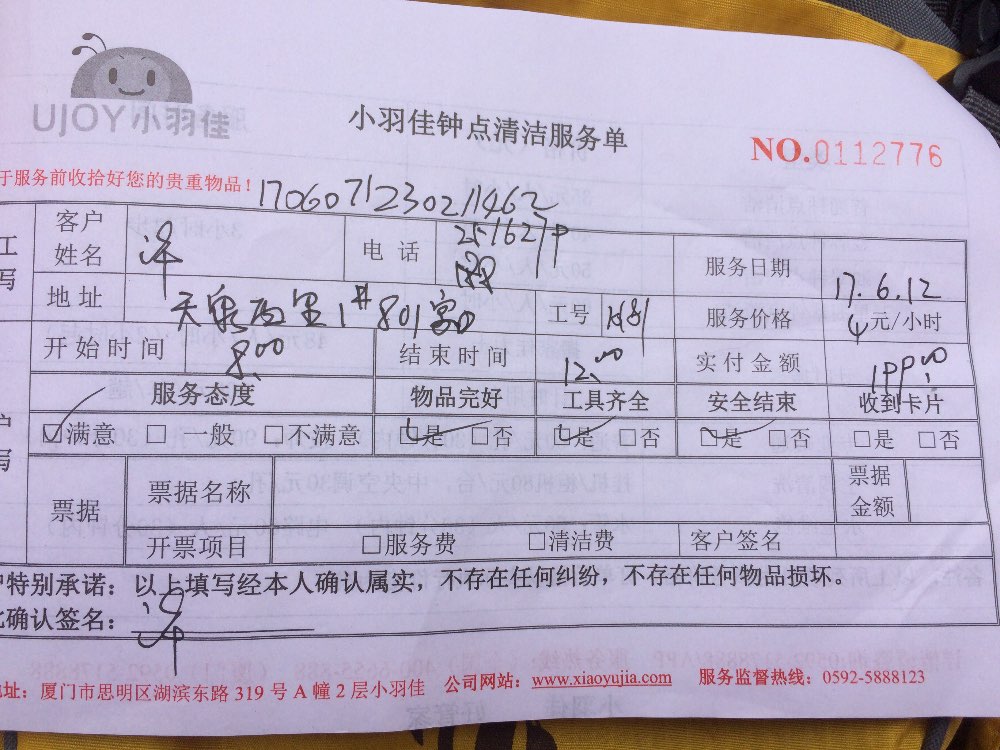 UJOY小羽佳
小羽佳钟点清洁服务单
NO.0112776
于服务前收拾好您的贵重物品！
1706071230211462
工
写
客户
姓名
电话
服务日期
17.6.12
地址
天泉西里1# 801室
工号
服务价格
元/小时
开始时间
8:00
结束时间
12:00
实付金额
服务态度
物品完好
工具齐全
安全结束
收到卡片
户
写
☑满意 □一般 □不满意
☑是 □否
☑是 □否
☑是 □否
□是 □否
票据
票据名称
票据
金额
开票项目
□服务费
□清洁费
客户签名
户特别承诺：以上填写经本人确认属实，不存在任何纠纷，不存在任何物品损坏。
此确认签名：
地址：厦门市思明区湖滨东路 319 号 A 幢 2 层小羽佳 公司网站：www.xiaoyujia.com 服务监督热线：0592-5888123